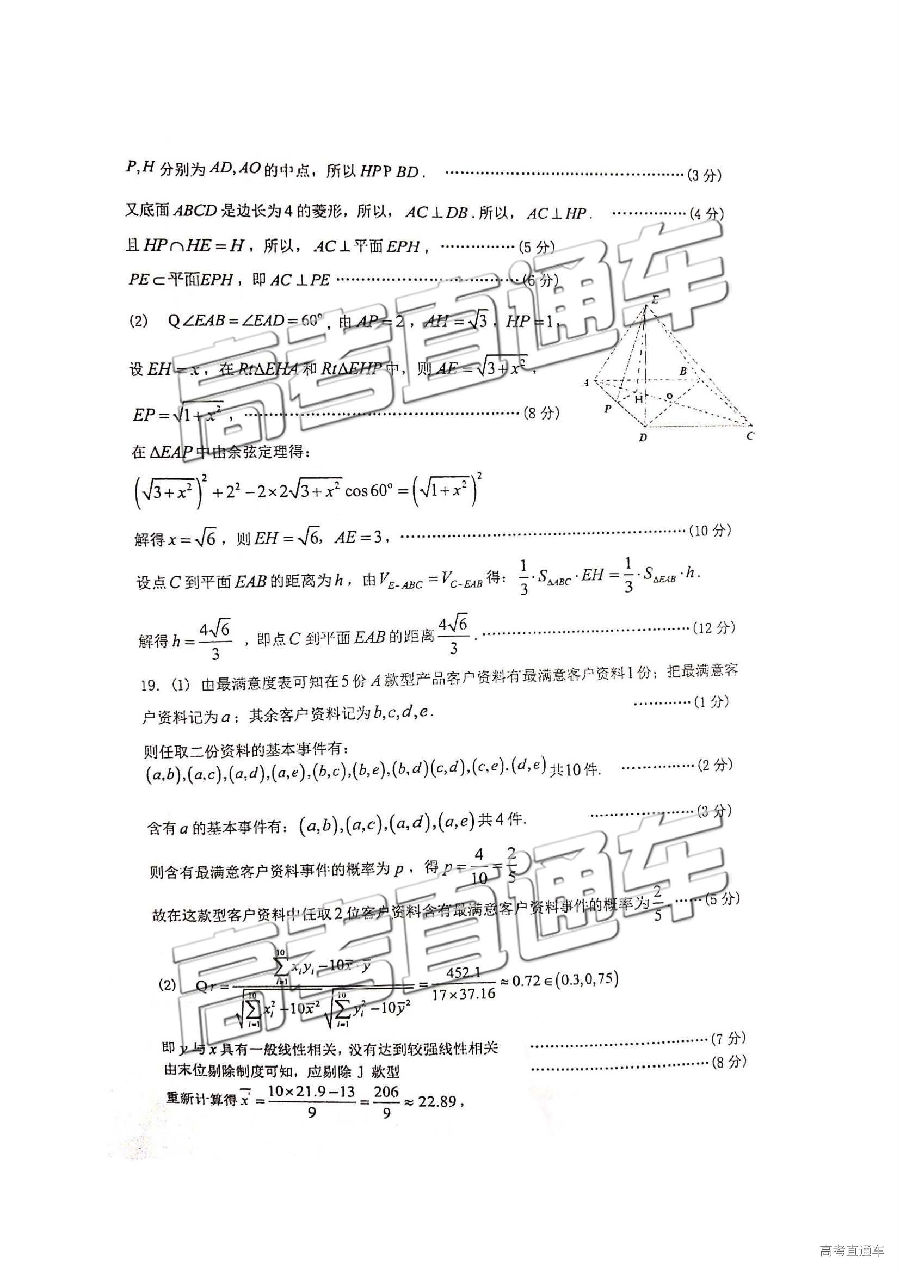 P,H 分别为 AD,AO 的中点，所以 HPP BD． ……………(3 分)
又底面 ABCD 是边长为 4 的菱形，所以，AC⊥DB．所以，AC⊥HP． ……………(4 分)
且 HP∩HE=H，所以，AC⊥平面EPH，……………(5 分)
PE⊂平面EPH，即 AC⊥PE ……………(6 分)
(2) Q∠EAB=∠EAD=60°，由 AP=2，AH=√3，HP=1，
设 EH=x，在 RtΔEHA 和 RtΔEHP 中，则 AE=√(3+x²)，
EP=√(1+x²)，……………(8 分)
E
A
B
H
o
P
D
C
在 ΔEAP 中由余弦定理得：
(√(3+x²))²+2²-2×2√(3+x²) cos60°=(√(1+x²))²
解得 x=√6，则 EH=√6，AE=3，……………(10 分)
设点 C 到平面 EAB 的距离为 h，由 V_{E-ABC}=V_{C-EAB} 得：1/3·S_{ΔABC}·EH=1/3·S_{ΔEAB}·h．
解得 h=4√6/3，即点 C 到平面 EAB 的距离 4√6/3．……………(12 分)
19. (1) 由最满意度表可知在 5 份 A 款型产品客户资料有最满意客户资料 1 份；把最满意客
户资料记为 a；其余客户资料记为 b,c,d,e． …………(1 分)
则任取二份资料的基本事件有：
(a,b),(a,c),(a,d),(a,e),(b,c),(b,e),(b,d)(c,d),(c,e).(d,e) 共10件． ……………(2 分)
含有 a 的基本事件有：(a,b),(a,c),(a,d),(a,e) 共 4 件． ……………(3 分)
则含有最满意客户资料事件的概率为 p，得 p=4/10=2/5
故在这款型客户资料中任取 2 位客户资料含有最满意客户资料事件的概率为 2/5 ……(5 分)
(2) Q r=(∑_{i=1}^{10} x_i y_i-10x̄·ȳ)/(√(∑_{i=1}^{10} x_i²-10x̄²) √(∑_{i=1}^{10} y_i²-10ȳ²))=452.1/(17×37.16)≈0.72∈(0.3,0,75)
即 y 与 x 具有一般线性相关，没有达到较强线性相关 ……………(7 分)
由末位剔除制度可知，应剔除 J 款型 ……………(8 分)
重新计算得 x̄=(10×21.9-13)/9=206/9≈22.89，
高考直通车
高考直通车
高考直通车